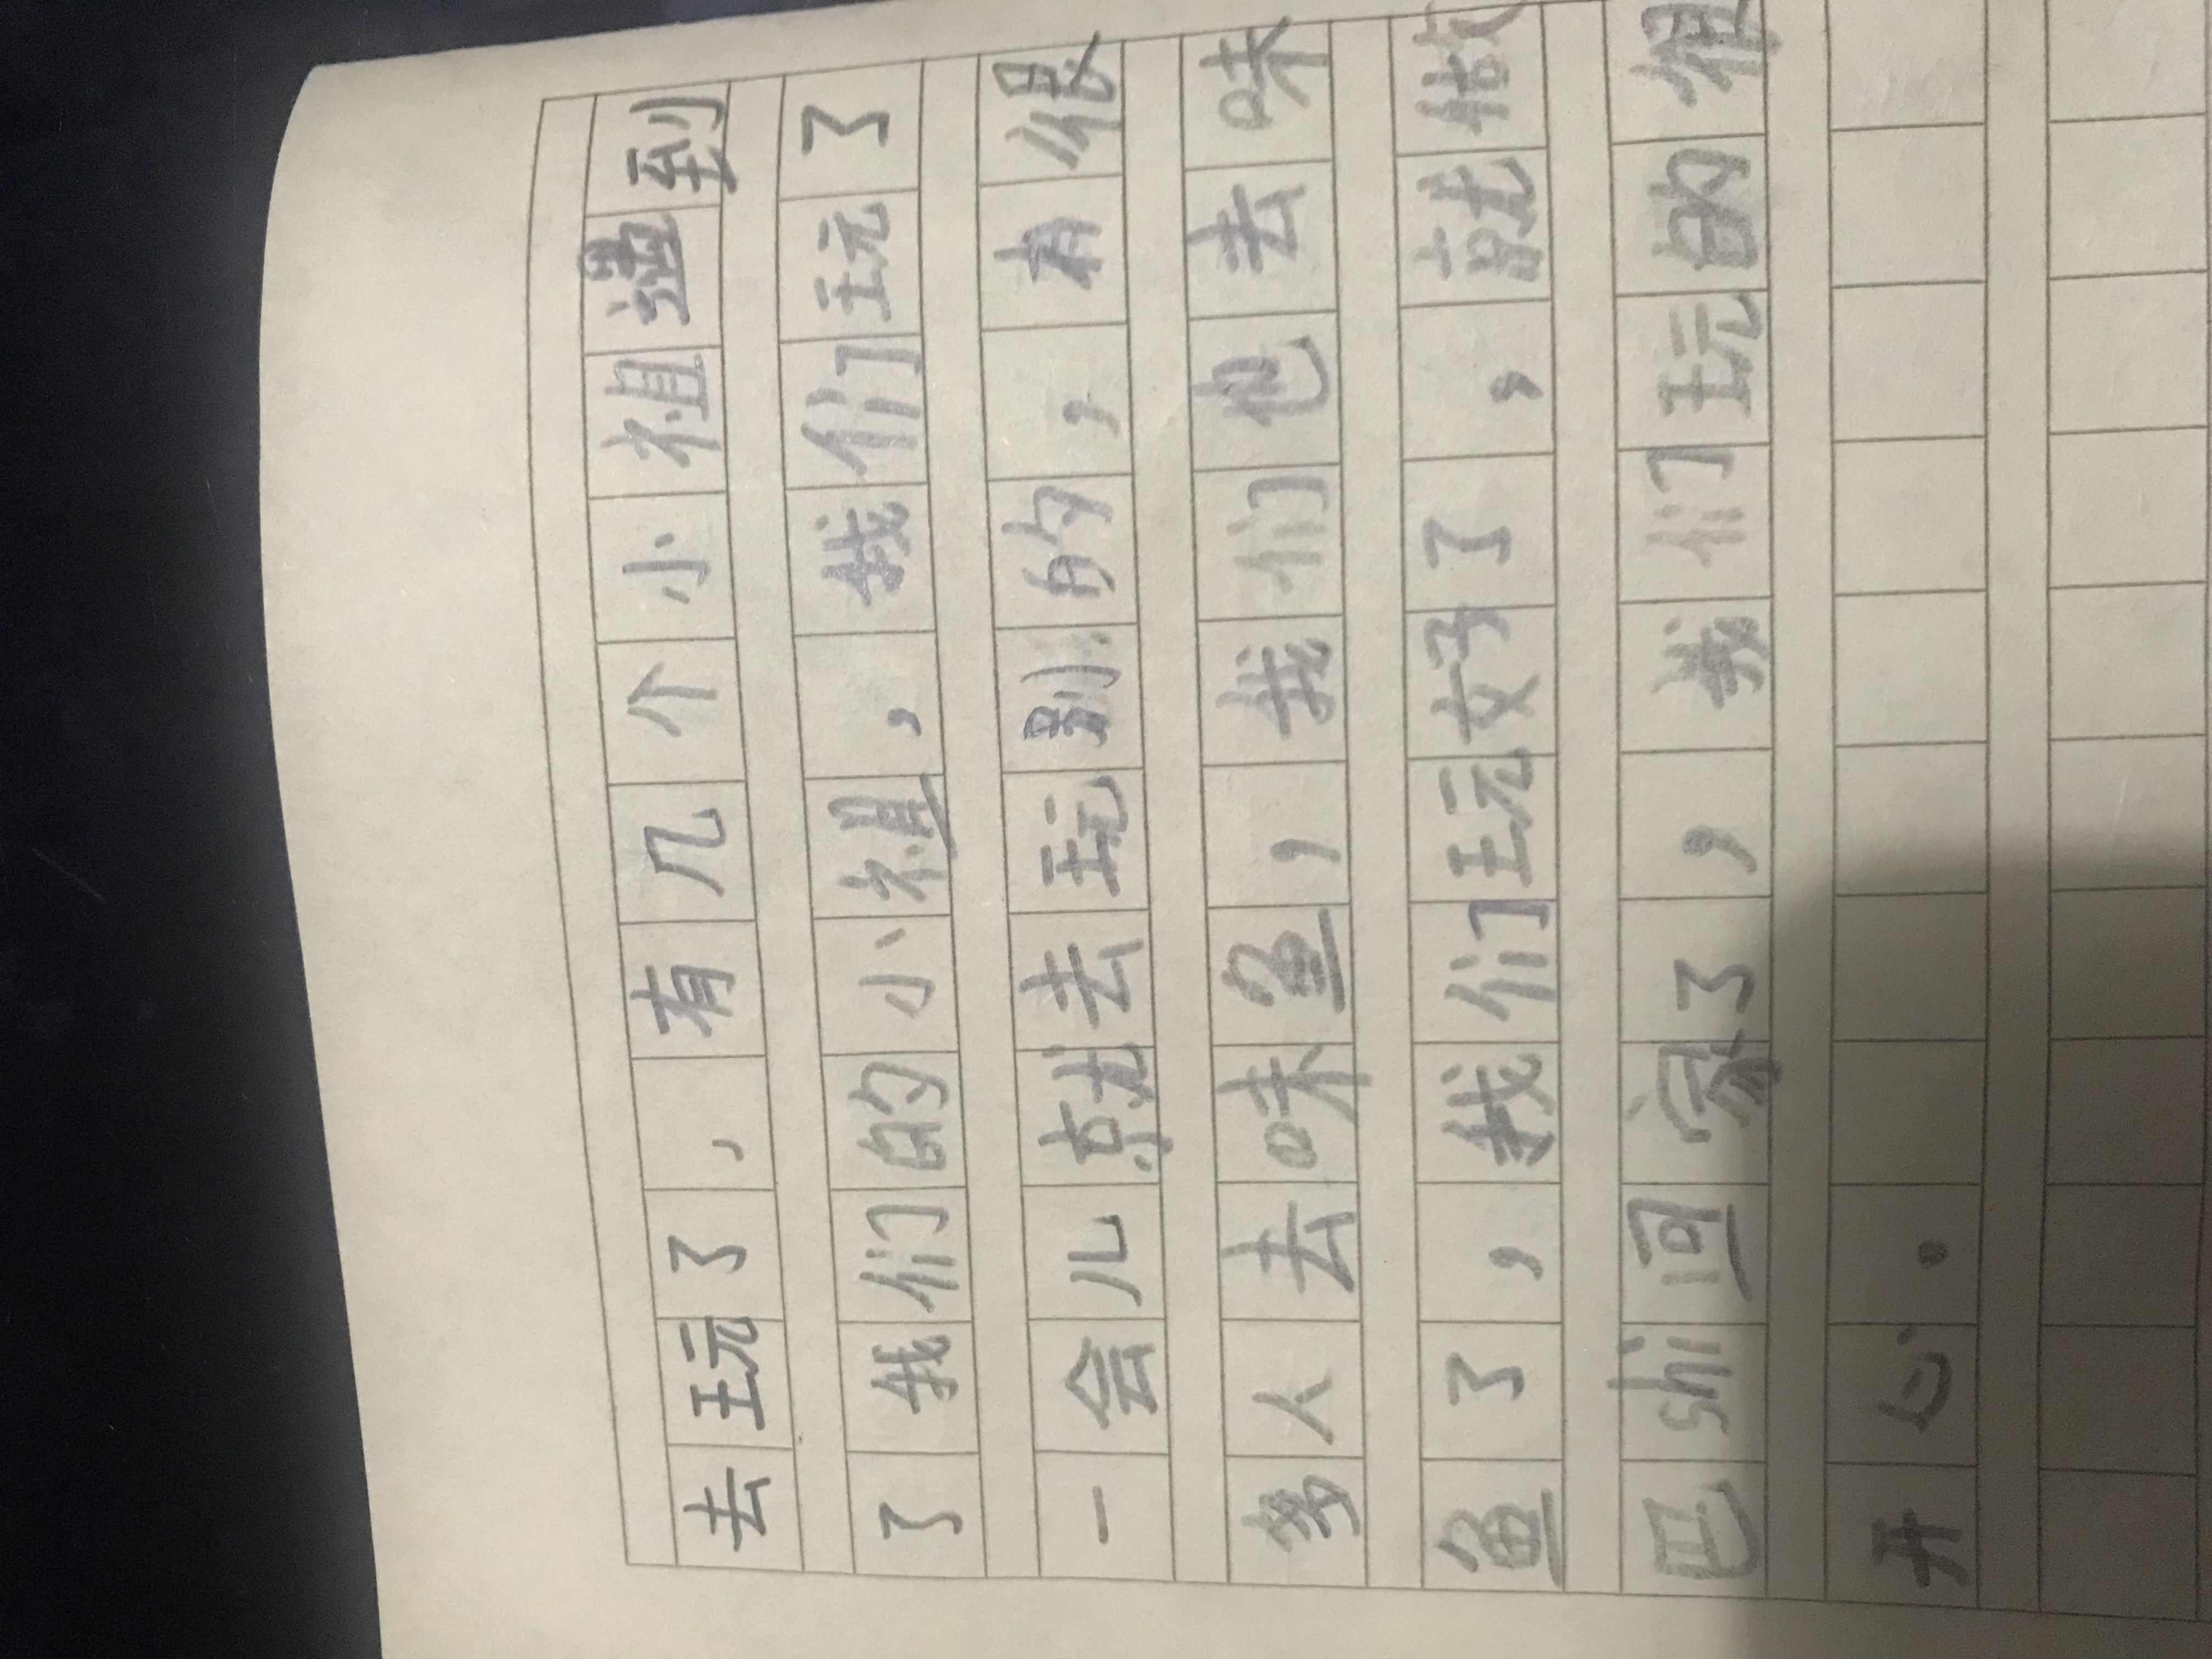 去玩了，有几个小祖遇到
了我们的小祖，我们玩了
一会儿就去玩别的，有很
多人去味鱼，我们也去味
鱼了，我们玩好了，就做
巴shi回家了，我们玩的很
开心。